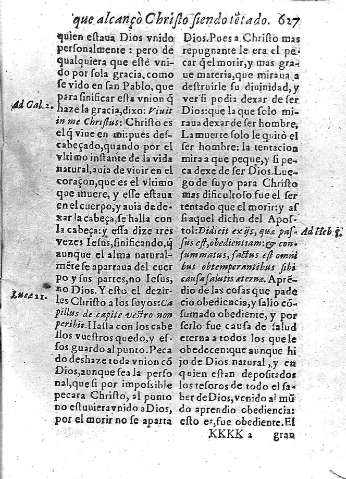 que alcançò Christo siendo tẽtado. 627
quien estaua Dios vnido
personalmente: pero de
qualquiera que estè vni-
do por sola gracia, como
se vido en san Pablo, que
para sinificar esta vnion q̃
haze la gracia, dixo: Viuit
in me Christus: Christo es
el q̃ viue en mi: pues des-
cabeçado, quando por el
vltimo instante de la vida
natural, auia de viuir en el
coraçon, que es el vltimo
que muere, y esse estaua
en el cuerpo, y auia de de-
xar la cabeça, se halla con
la cabeça: y essa dize tres
vezes Iesus, sinificando, q̃
aunque el alma natural-
mẽte se aparraua del cuer
po y sus partes, no Iesus,
no Dios. Y esto el dezir-
les Christo a los suyos: Ca
pillus de capite vestro non
peribit. Halla con los cabe
llos vuestros quedo, y es-
sos guardo al punto. Peca
do deshaze toda vnion cõ
Dios, aunque sea la perso
nal, que si por impossible
pecara Christo, al punto
no estuuiera vnido a Dios,
por el morir no se aparta
Ad Gal. 2.
Lucæ 21.
Dios. Pues a Christo mas
repugnante le era el pe-
car q̃ el morir, y mas gra-
ue materia, que miraua a
destruirle su diuinidad, y
ver si podia dexar de ser
Dios: que la que solo mi-
raua dexar de ser hombre.
La muerte solo le quitò el
ser hombre: la tentacion
mira a que peque, y si pe-
ca dexe de ser Dios. Lue-
go de suyo para Christo
mas dificultoso fue el ser
tentado que el morir: y as
si aquel dicho del Apos-
tol: Didicit ex ijs, quæ pas-
sus est, obedientiam: & con-
summatus, factus est omni
bus obtemperantibus sibi
causa salutis æternæ. Aprẽ-
dio de las cosas que pade
cio obediencia, y salio cõ-
sumado obediente, y por
serlo fue causa de salud
eterna a todos los que le
obedecen: que aunque hi
jo de Dios natural, y en
quien estan depositados
los tesoros de todo el sa-
ber de Dios, venido al mũ
do aprendio obediencia:
esto es, fue obediente. El
Ad Heb
KKKK 2 gran